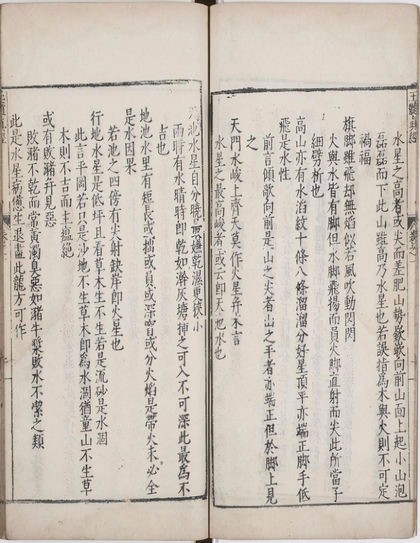 水星之高者或尖而差肥山勢欹嵌向前山面上起小山泡
磊磊而下此山雖高乃水星也若誤指為木與火則不可定
禍福
旗腳雖飛却無焰似若風吹動閃閃
火與水皆有腳但水腳飛揚而員火腳直射而尖此所當子
細劈析也
高山亦有水滔紋十條八條溜溜分好星頂平亦端正腳手低
飛是水性
前言傾欹向前是山之尖者山之平者亦端正但於腳上見
之
天門水峻上齊天莫作火星弁木言
水星之最高峻者或云即天池水也
水星自分曉
雨時有水晴時即乾如瀚灰塘揷之可入不可深此最為不
吉也
地池水里有短長或拙或員或深窅或分火焰是帶火未必全
是水因果
若池之四傍有尖射缺岸即火星也
行地水星是低坪且看草木生不生若是流砂是水涸
此言平岡若只是沙地不生草木即為水涸猶童山不生草
木則不吉而主瘟絕
或有敗豬并見惡
敗豬不乾而常黃濁臭惡如豬牛㓒敗水不潔之類
此是水星病憊生退盡此龍方可作